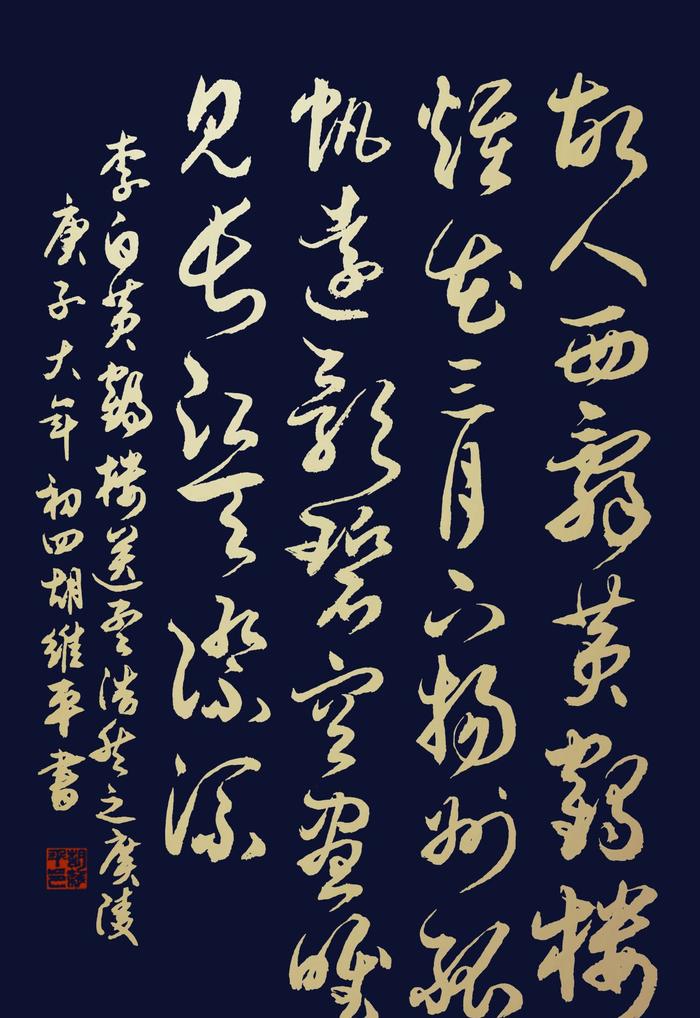 故人西辭黄鶴樓
煙花三月下揚州孤
帆遠影碧空盡唯
見長江天際流
李白黄鶴樓送孟浩然之廣陵
庚子大年初四胡維平書